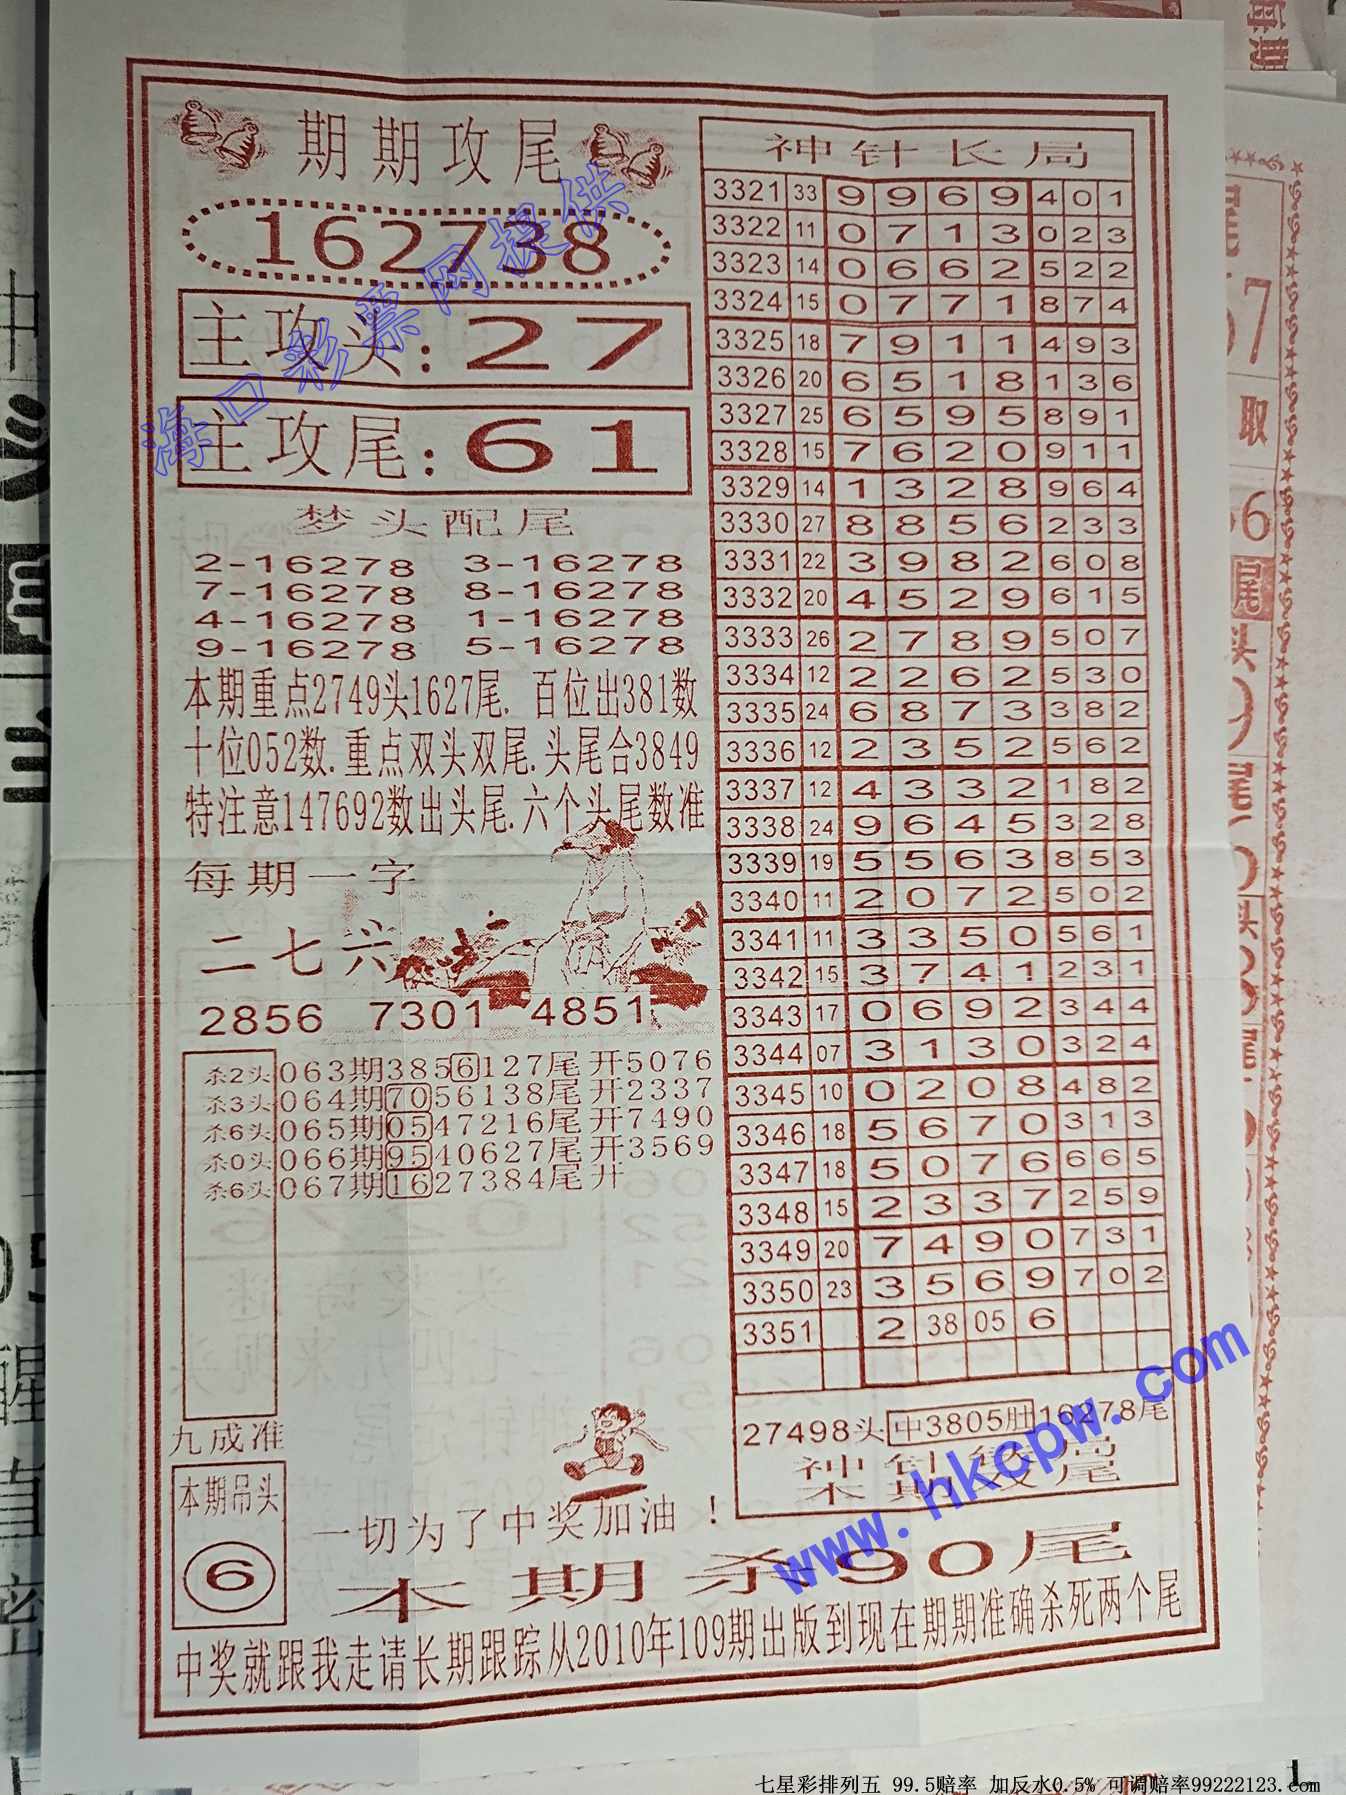 期期攻尾
162738
主攻头:27
主攻尾:61
梦头配尾
2-16278 3-16278
7-16278 8-16278
4-16278 1-16278
9-16278 5-16278
本期重点2749头1627尾.百位出381数
十位052数.重点双头双尾.头尾合3849
特注意147692数出头尾.六个头尾数准
每期一字
二七六
2856 7301 4851
杀2头 063期3856127尾开5076
杀3头 064期7056138尾开2337
杀6头 065期0547216尾开7490
杀0头 066期9540627尾开3569
杀6头 067期1627384尾开
九成准
本期吊头
6
一切为了中奖加油!
神针长局
3321 33 9 9 6 9 4 0 1
3322 11 0 7 1 3 0 2 3
3323 14 0 6 6 2 5 2 2
3324 15 0 7 7 1 8 7 4
3325 18 7 9 1 1 4 9 3
3326 20 6 5 1 8 1 3 6
3327 25 6 5 9 5 8 9 1
3328 15 7 6 2 0 9 1 1
3329 14 1 3 2 8 9 6 4
3330 27 8 8 5 6 2 3 3
3331 22 3 9 8 2 6 0 8
3332 20 4 5 2 9 6 1 5
3333 26 2 7 8 9 5 0 7
3334 12 2 2 6 2 5 3 0
3335 24 6 8 7 3 3 8 2
3336 12 2 3 5 2 5 6 2
3337 12 4 3 3 2 1 8 2
3338 24 9 6 4 5 3 2 8
3339 19 5 5 6 3 8 5 3
3340 11 2 0 7 2 5 0 2
3341 11 3 3 5 0 5 6 1
3342 15 3 7 4 1 2 3 1
3343 17 0 6 9 2 3 4 4
3344 07 3 1 3 0 3 2 4
3345 10 0 2 0 8 4 8 2
3346 18 5 6 7 0 3 1 3
3347 18 5 0 7 6 6 6 5
3348 15 2 3 3 7 2 5 9
3349 20 7 4 9 0 7 3 1
3350 23 3 5 6 9 7 0 2
3351 2 38 05 6
27498头中3805肚16278尾
本期杀90尾
中奖就跟我走请长期跟踪从2010年109期出版到现在期期准确杀死两个尾
海口彩票网提供
www.hkcpw.com
七星彩排列五 99.5赔率 加反水0.5% 可调赔率99222123.com